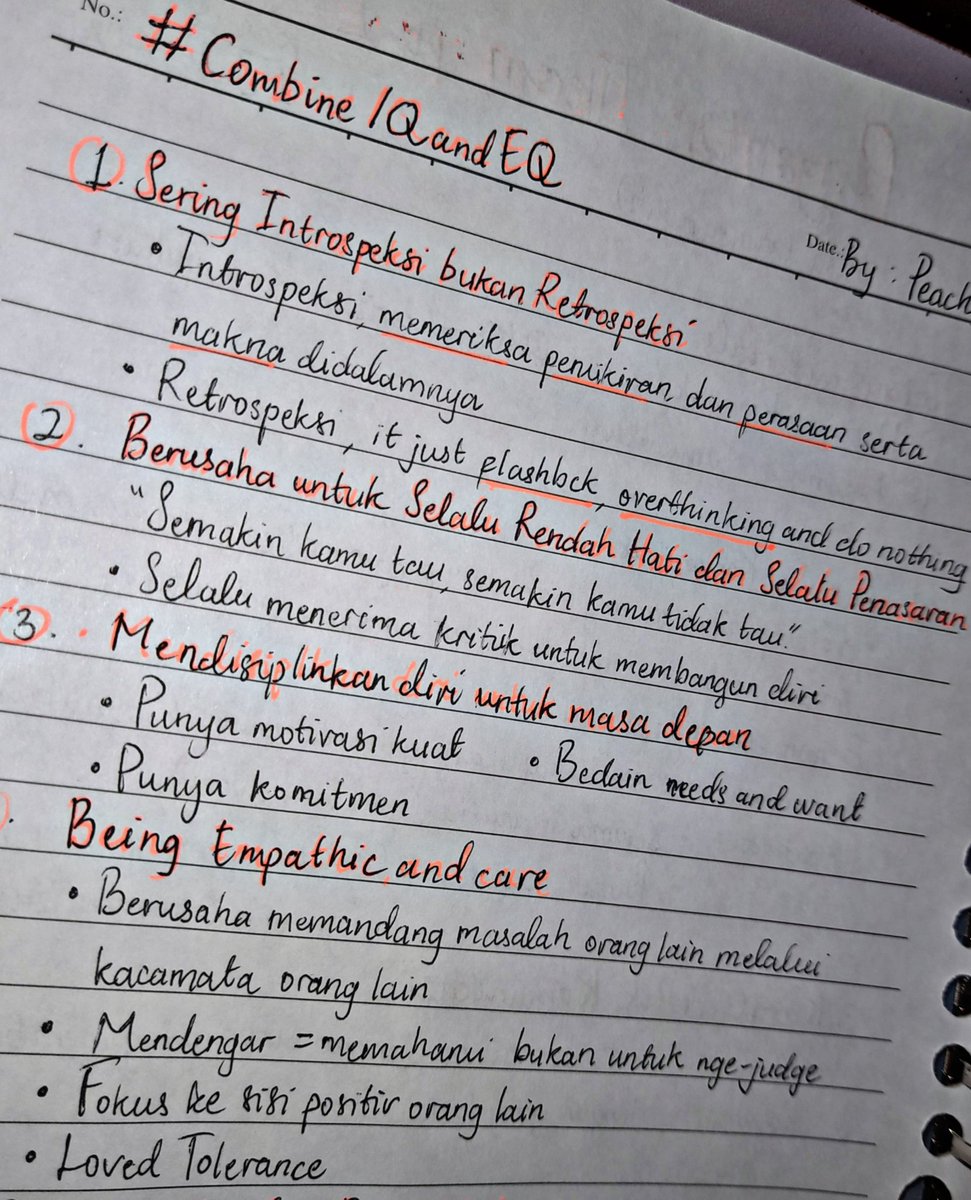 No.:
#Combine IQ and EQ
Date.: By : Peach
1. Sering Introspeksi bukan Retrospeksi
• Introspeksi, memeriksa pemikiran, dan perasaan serta
makna didalamnya
• Retrospeksi, it just flashbck, overthinking and do nothing
2. Berusaha untuk Selalu Rendah Hati dan Selalu Penasaran
"Semakin kamu tau, semakin kamu tidak tau."
• Selalu menerima kritik untuk membangun diri
3. Mendisiplinkan diri untuk masa depan
• Punya motivasi kuat • Bedain needs and want
• Punya komitmen
Being Empathic and care
• Berusaha memandang masalah orang lain melalui
kacamata orang lain
• Mendengar = memahami bukan untuk nge-judge
• Fokus ke sisi positif orang lain
• Loved Tolerance